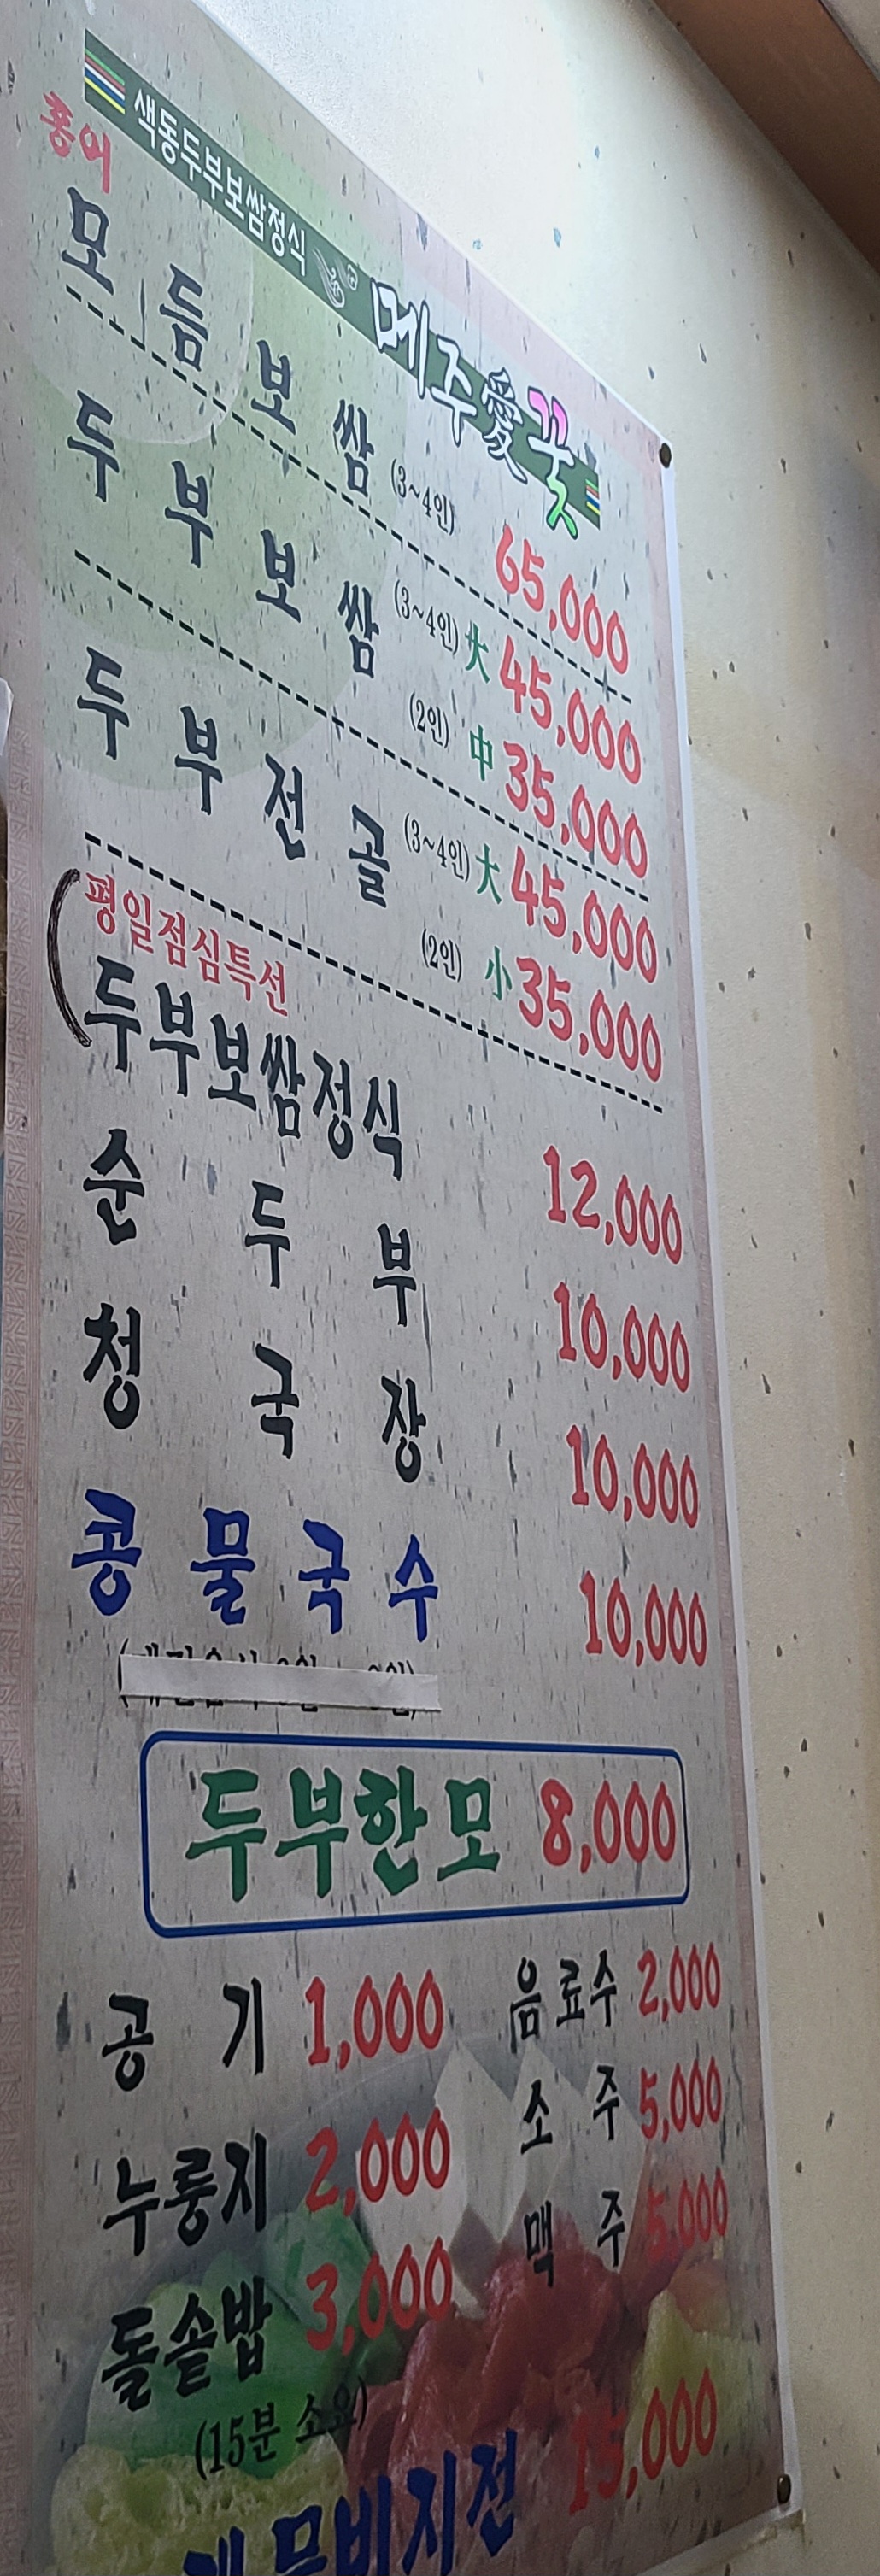 색동두부보쌈정식 메주愛꽃
홍어
모듬보쌈 (3~4인) 65,000
두부보쌈 (3~4인) 大 45,000
(2인) 中 35,000
두부전골 (3~4인) 大 45,000
(2인) 小 35,000
평일점심특선
두부보쌈정식 12,000
순두부 10,000
청국장 10,000
콩물국수 10,000
두부한모 8,000
공기 1,000 음료수 2,000
누룽지 2,000 소주 5,000
돌솥밥 3,000 맥주 5,000
(15분 소요)
비지전 15,000